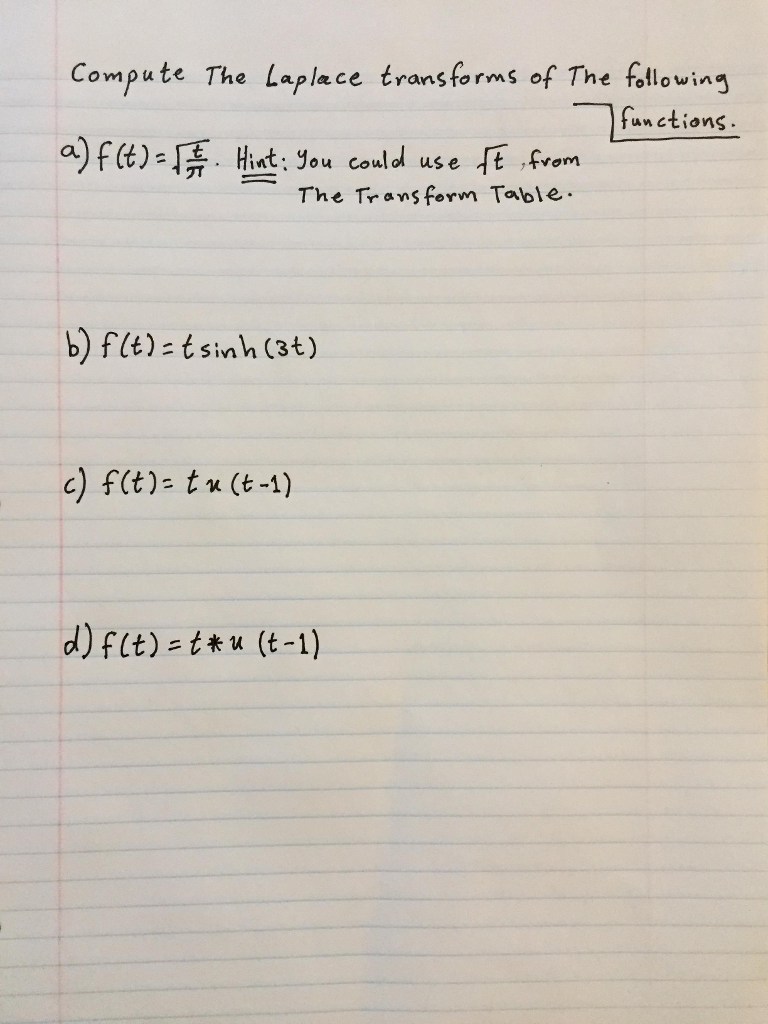 Compute The Laplace transforms of The following
functions.
a) f(t) = √(t/π). Hint: You could use √t, from
The Transform Table.
b) f(t) = t sinh (3t)
c) f(t) = t u (t-1)
d) f(t) = t * u (t-1)